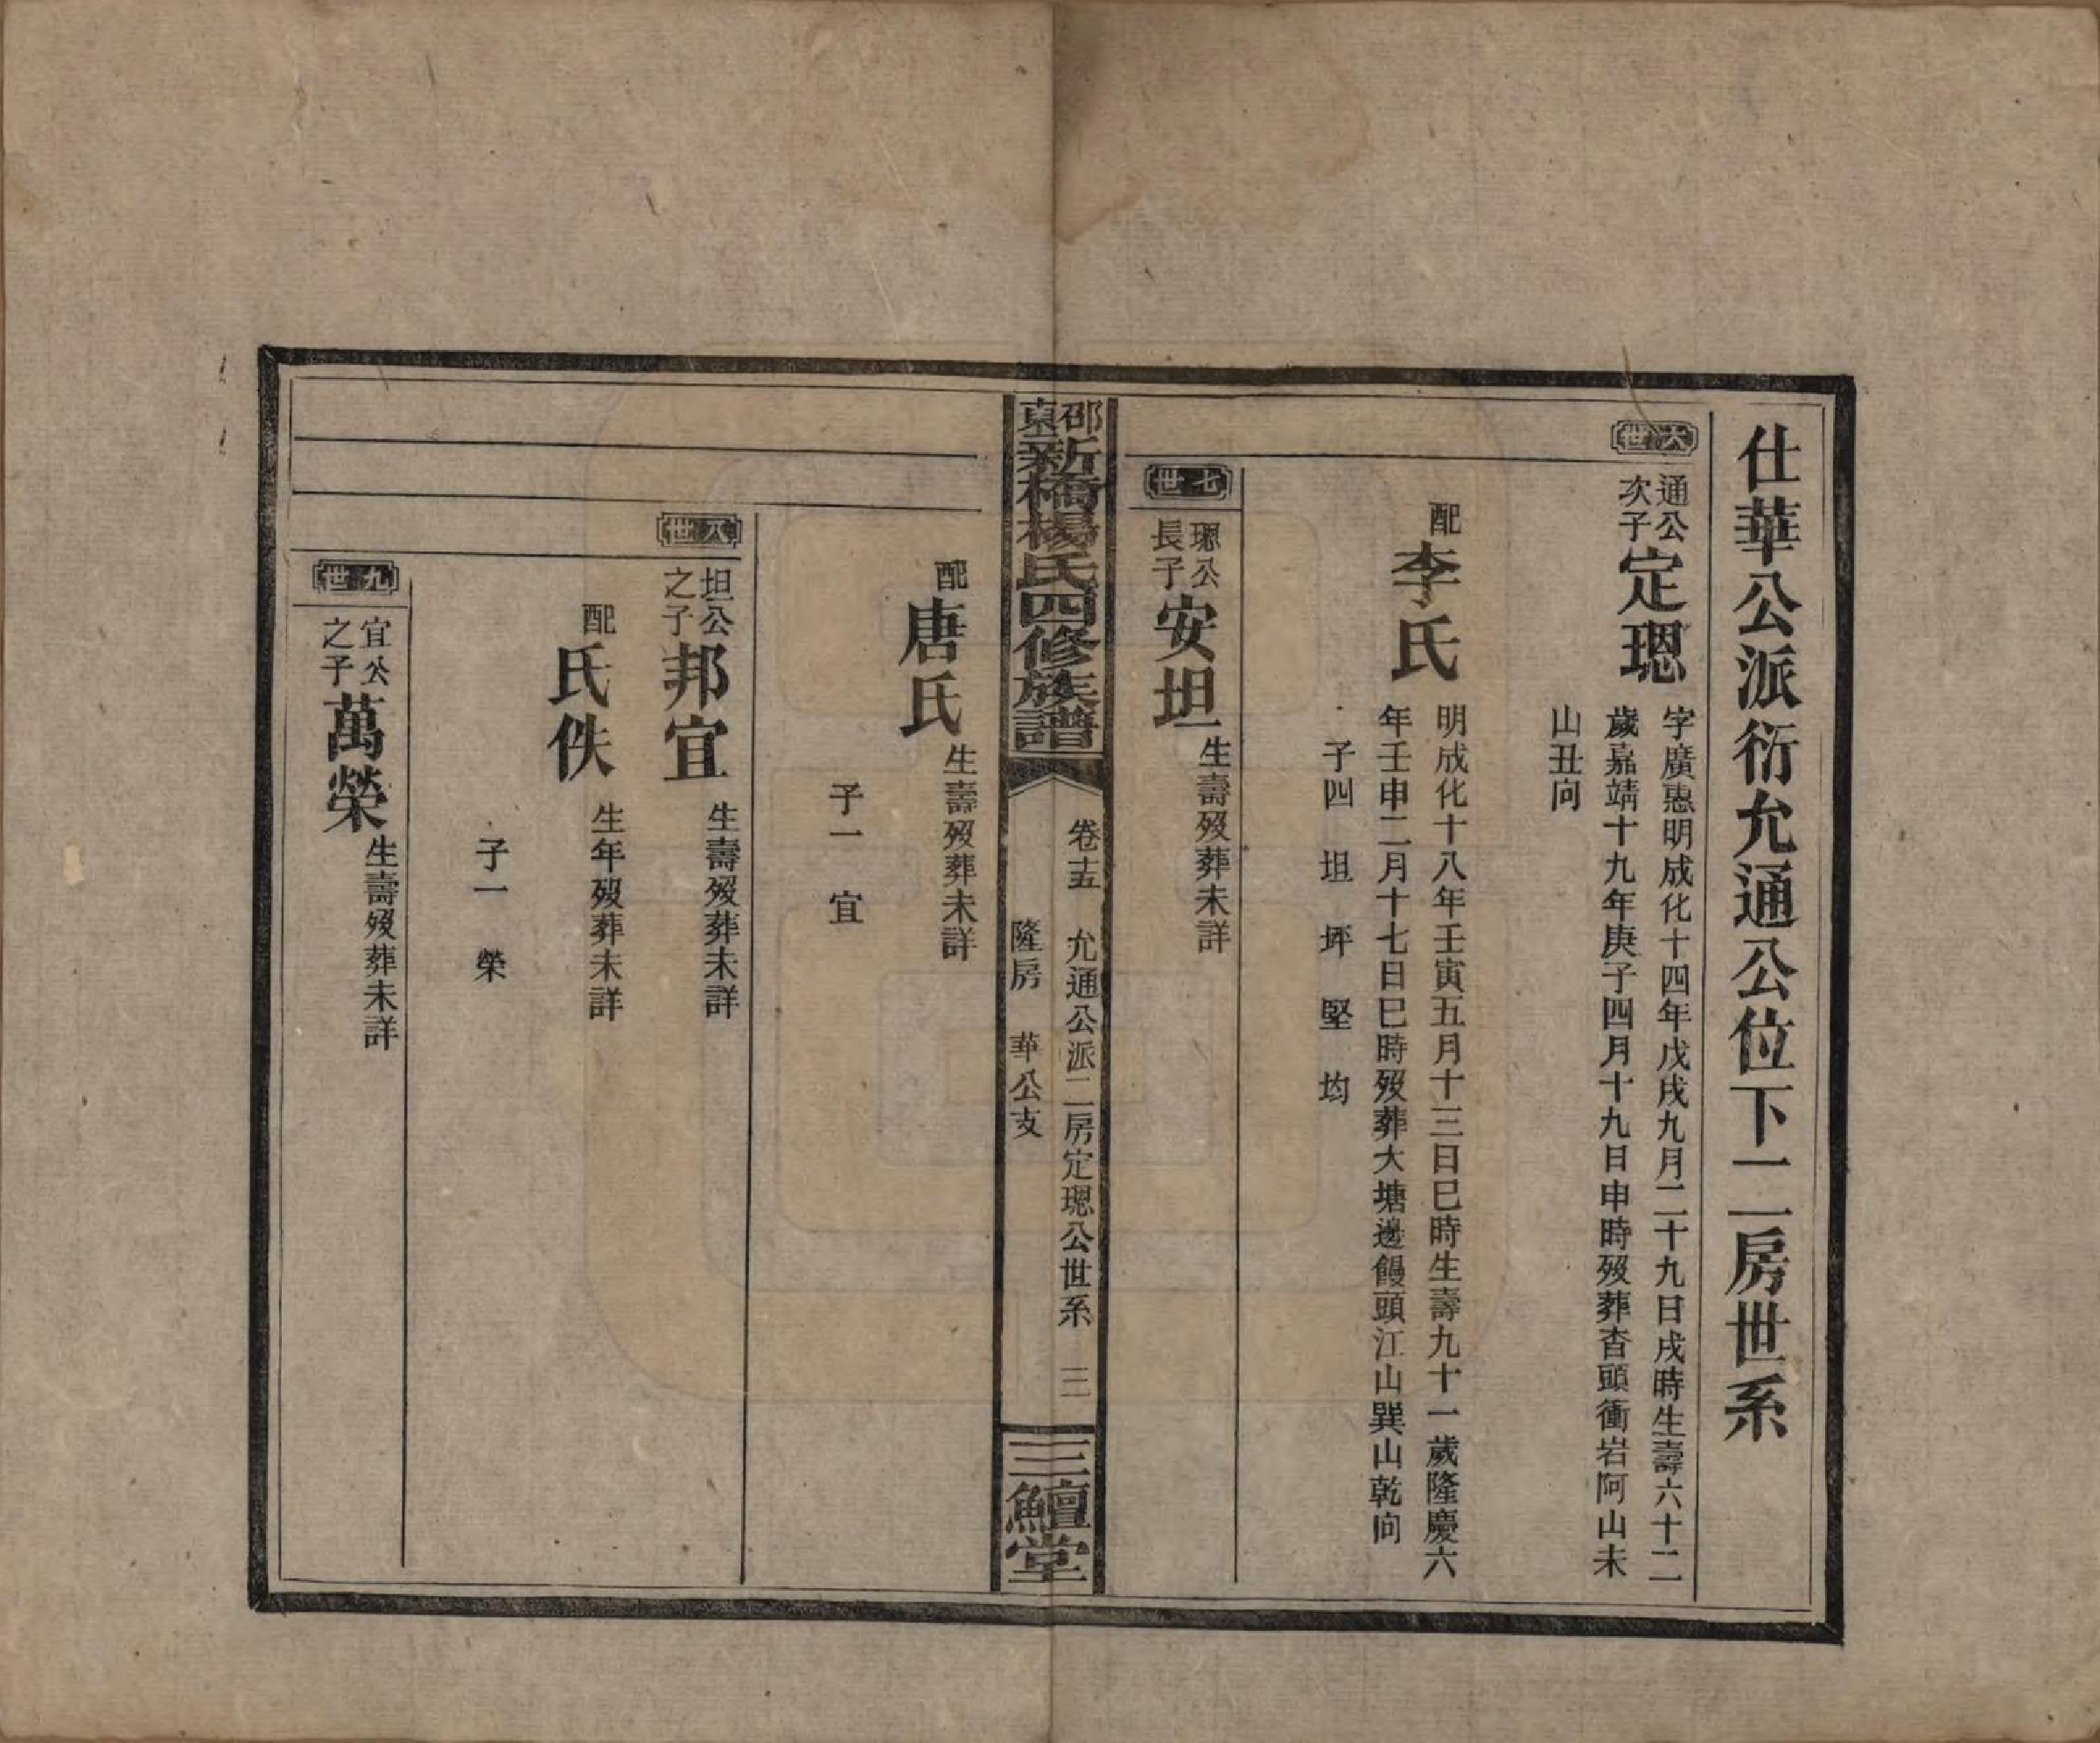 仕華公派衍允通公位下二房世系
六世
通公次子定璁
字廣惠明成化十四年戊戌九月二十九日戌時生壽六十二
歲嘉靖十九年庚子四月十九日申時歿葬杳頭衝岩阿山未
山丑向
配李氏
明成化十八年壬寅五月十三日巳時生壽九十一歲隆慶六
年壬申二月十七日巳時歿葬大塘邊饅頭江山巽山乾向
子四 坦 坪 堅 均
七世
璁公長子安坦
生壽歿葬未詳
邵東新橋楊氏四修族譜
卷十五 允通公派二房定璁公世系 三
隆房 華公支
三鱣堂
配唐氏
生壽歿葬未詳
子一 宜
八世
坦公之子邦宜
生壽歿葬未詳
配氏佚
生年歿葬未詳
子一 榮
九世
宜公之子萬榮
生壽歿葬未詳